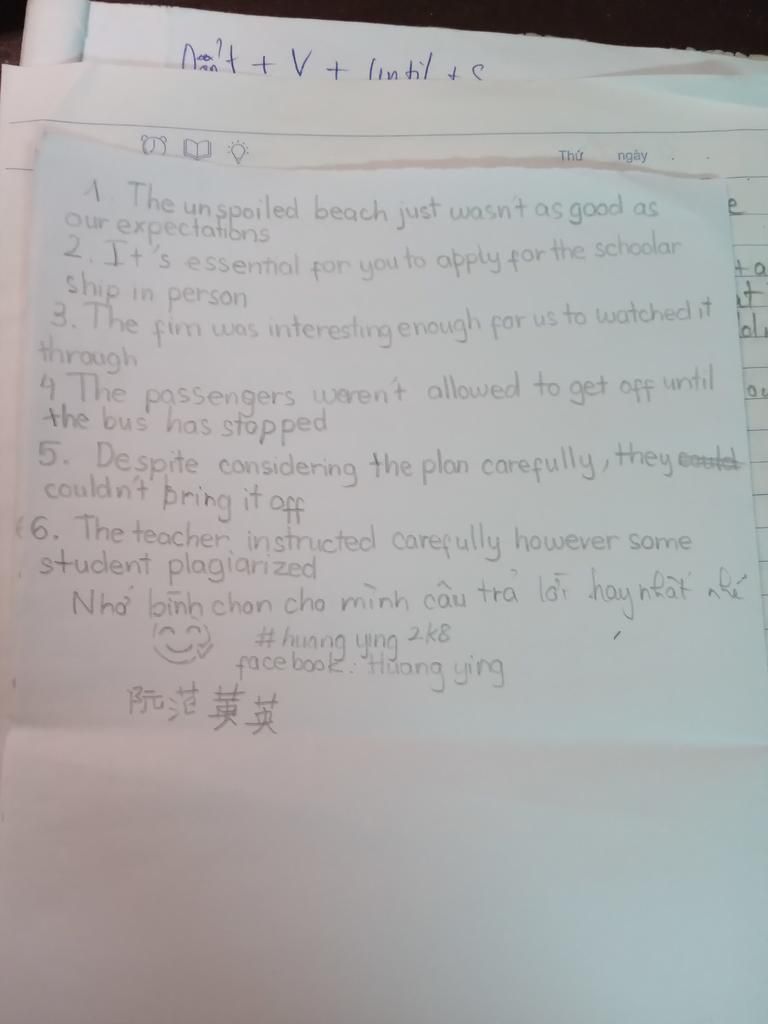 + V + until + S
Thứ ngày
1. The unspoiled beach just wasn't as good as
our expectations
2. It's essential for you to apply for the schoolar
ship in person
3. The fim was interesting enough for us to watched it
through
4 The passengers weren't allowed to get off until
the bus has stopped
5. Despite considering the plan carefully, they could
couldn't bring it off
6. The teacher instructed carefully however some
student plagiarized
Nhớ bình chọn cho mình câu trả lời hay nhất nhé
#huang ying 2k8
facebook: Huang ying
阮范黄英